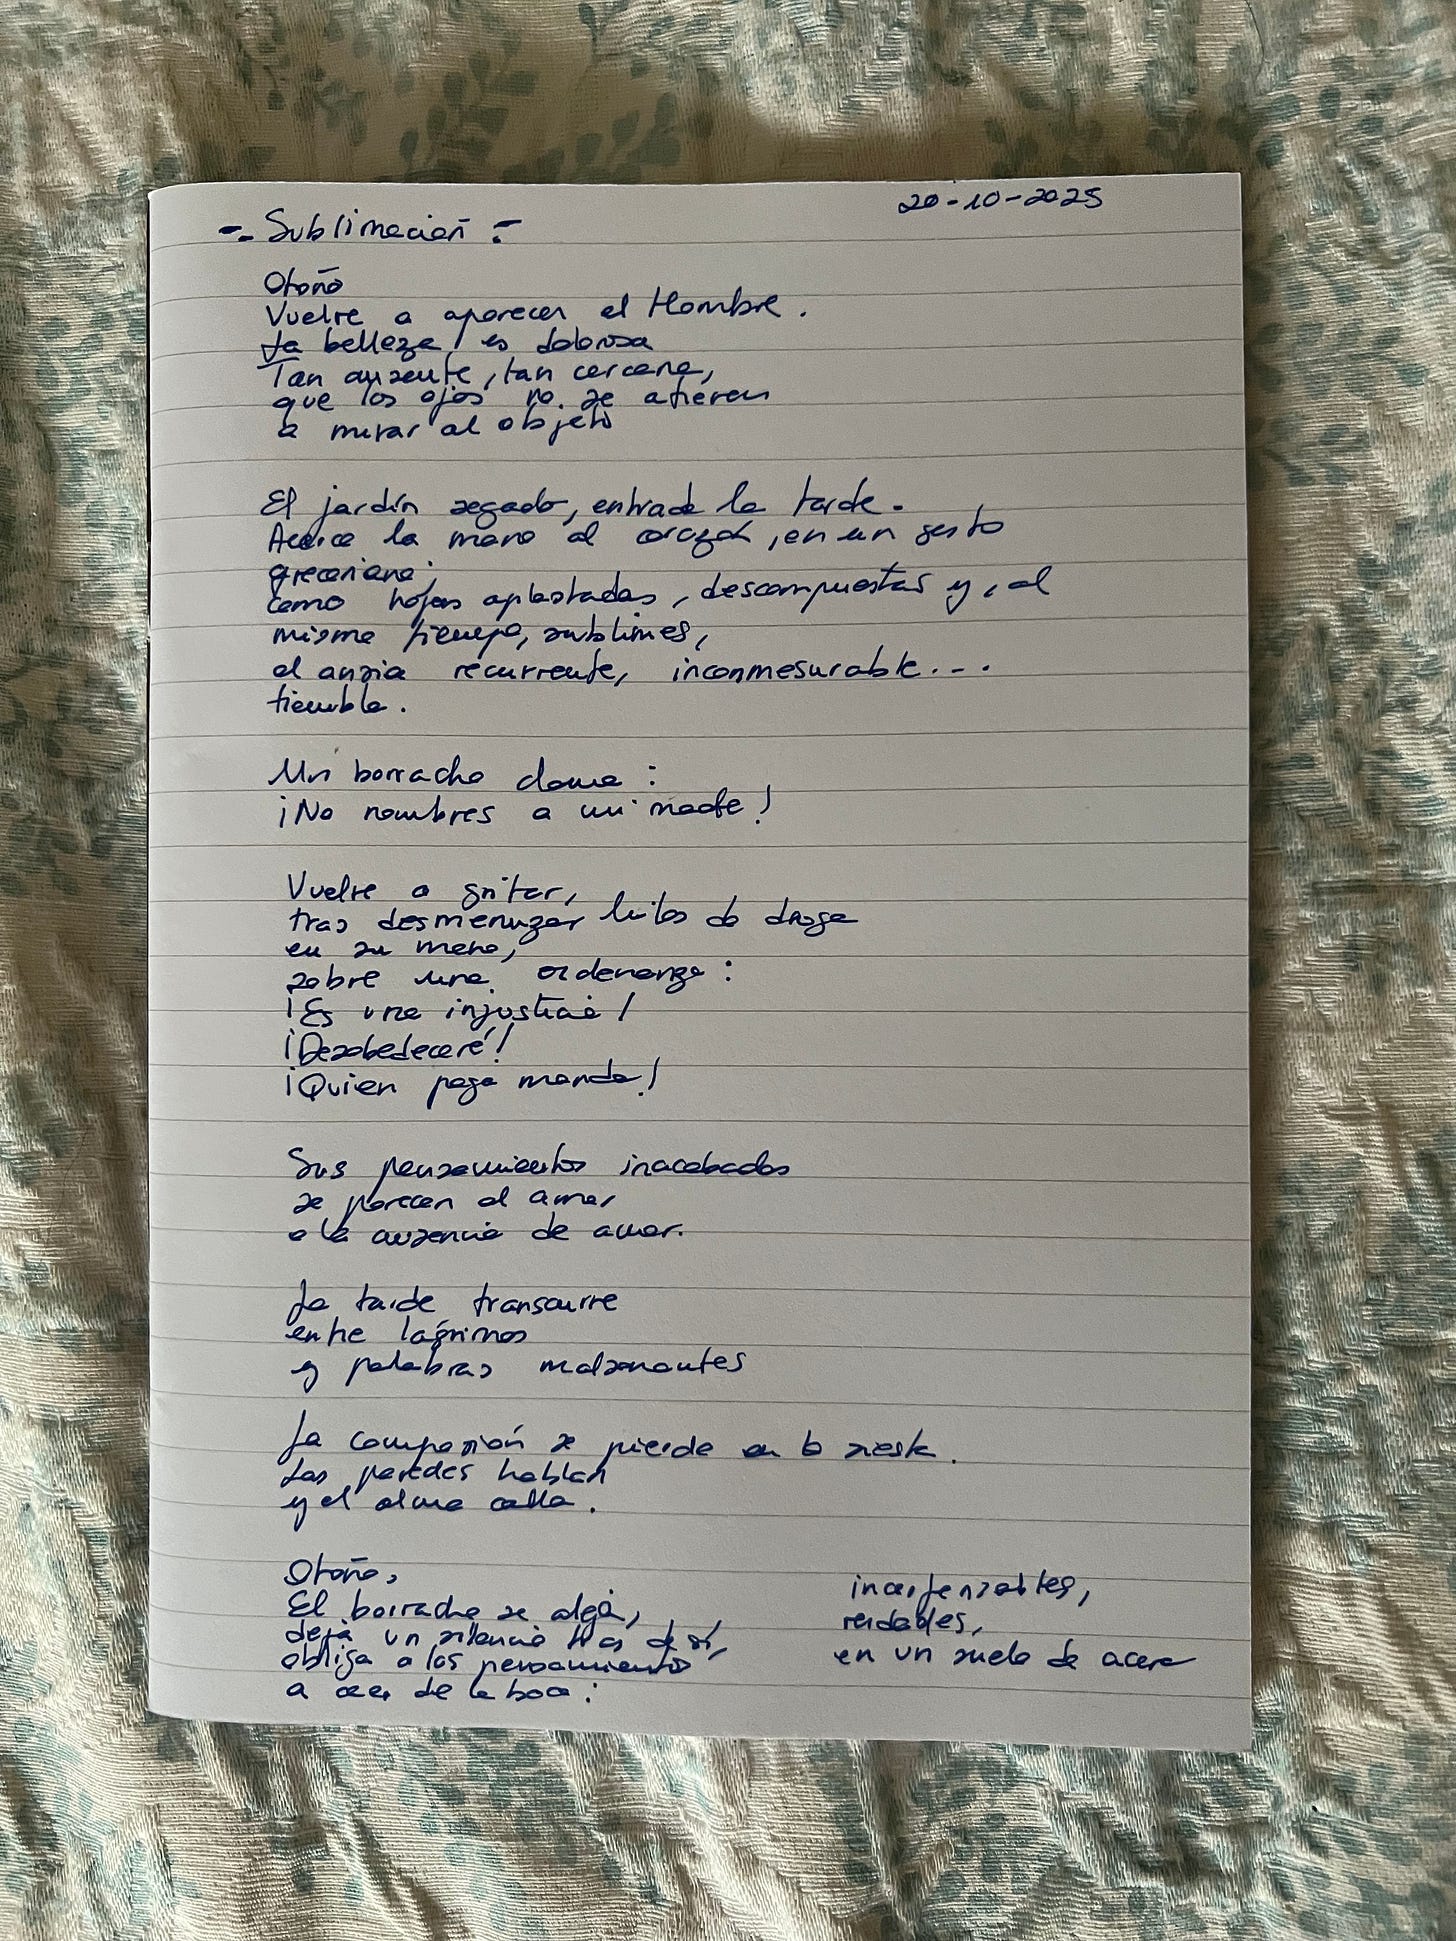 20-10-2025
-. Sublimación -.
Otoño
Vuelve a aparecer el Hombre.
La belleza, es dolorosa
Tan ausente, tan cercana,
que los ojos no se atreven
a mirar al objeto
El jardín segado, entrada la tarde.
Acerca la mano al corazón, en un gesto
grecoriano.
como hojas aplastadas, descompuestas y, al
mismo tiempo, sublimes,
el ansia recurrente, inconmesurable...
tiembla.
Un borracho clama:
¡No nombres a mi madre!
Vuelve a gritar,
tras desmenuzar hilos de droga
en su mano,
sobre una ordenanza:
¡Es una injusticia!
¡Desobedeceré!
¡Quien paga manda!
Sus pensamientos inacabados
se parecen al amor
o la ausencia de amor.
La tarde transcurre
entre lágrimas
y palabras malsonantes
La compasión se pierde en la siesta.
Las paredes hablan
y el alma calla.
Otoño,
El borracho se aleja,
deja un silencio tras de sí,
obliga a los pensamientos
a caer de la boca:
indefensables,
en un suelo de acero